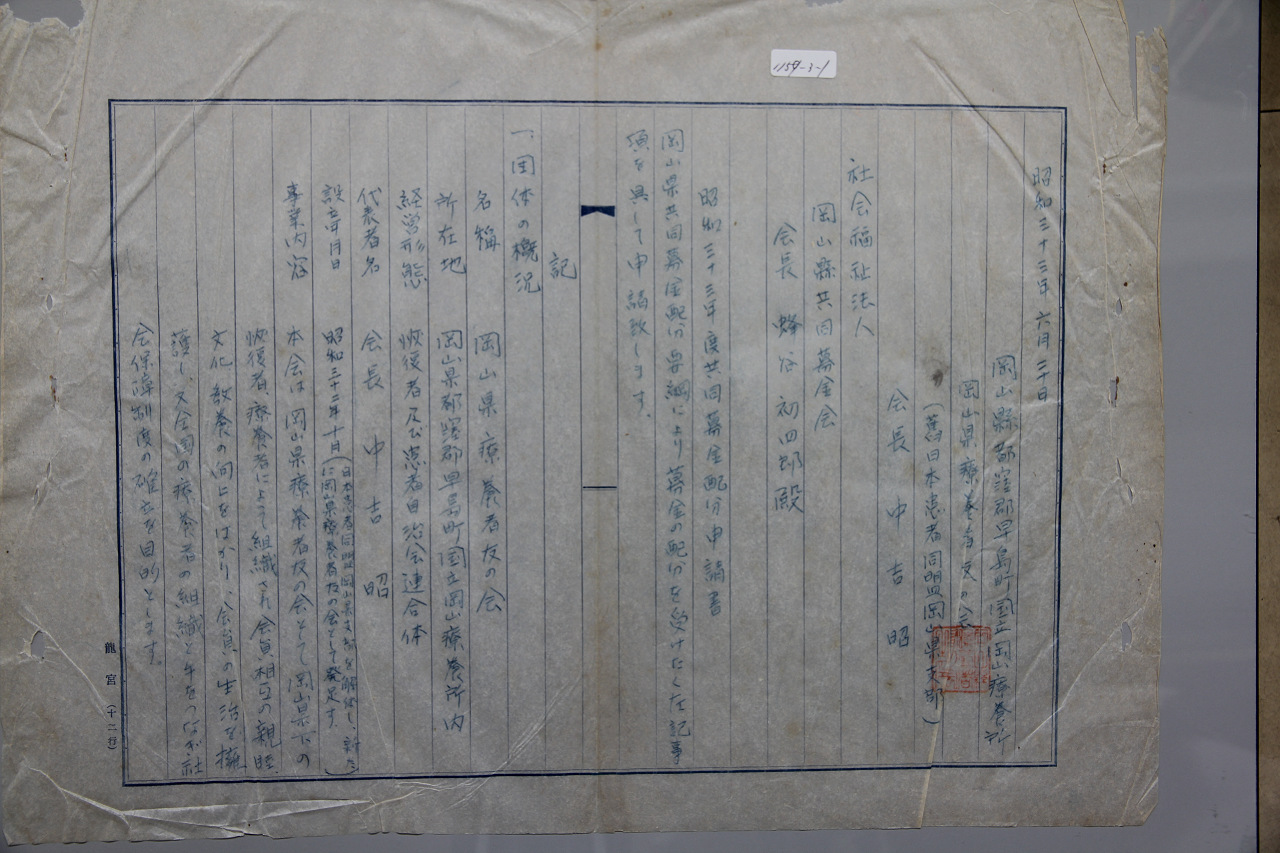 1154-3-1
昭和三十三年六月三十日
岡山縣都窪郡早島町国立岡山療養所
岡山県療養者友の会
(舊日本患者同盟岡山県支部)
会長 中吉昭
社会福祉法人
岡山縣共同募金会
会長 蜂谷初四郎殿
昭和三十三年度共同募金配分申請書
岡山県共同募金配分要綱により募金の配分を受けたく左記事
項を具して申請致します。
記
一、団体の概況
名稱 岡山県療養者友の会
所在地 岡山県都窪郡早島町国立岡山療養所内
経営形態 恢復者及び患者自治会連合体
代表者名 会長 中吉昭
設立年月日 昭和三十二年十月(日本患者同盟岡山県支部を解体し、新たに岡山県療養者友の会として発足す。)
事業内容 本会は岡山県療養者友の会として岡山県下の
恢復者、療養者によって組織され会員相互の親睦、
文化教養の向上をはかり、会員の生活を擁
護し、又全国の療養者の組織と手をつなぎ社
会保障制度の確立を目的とします。
龍宮(十二行)